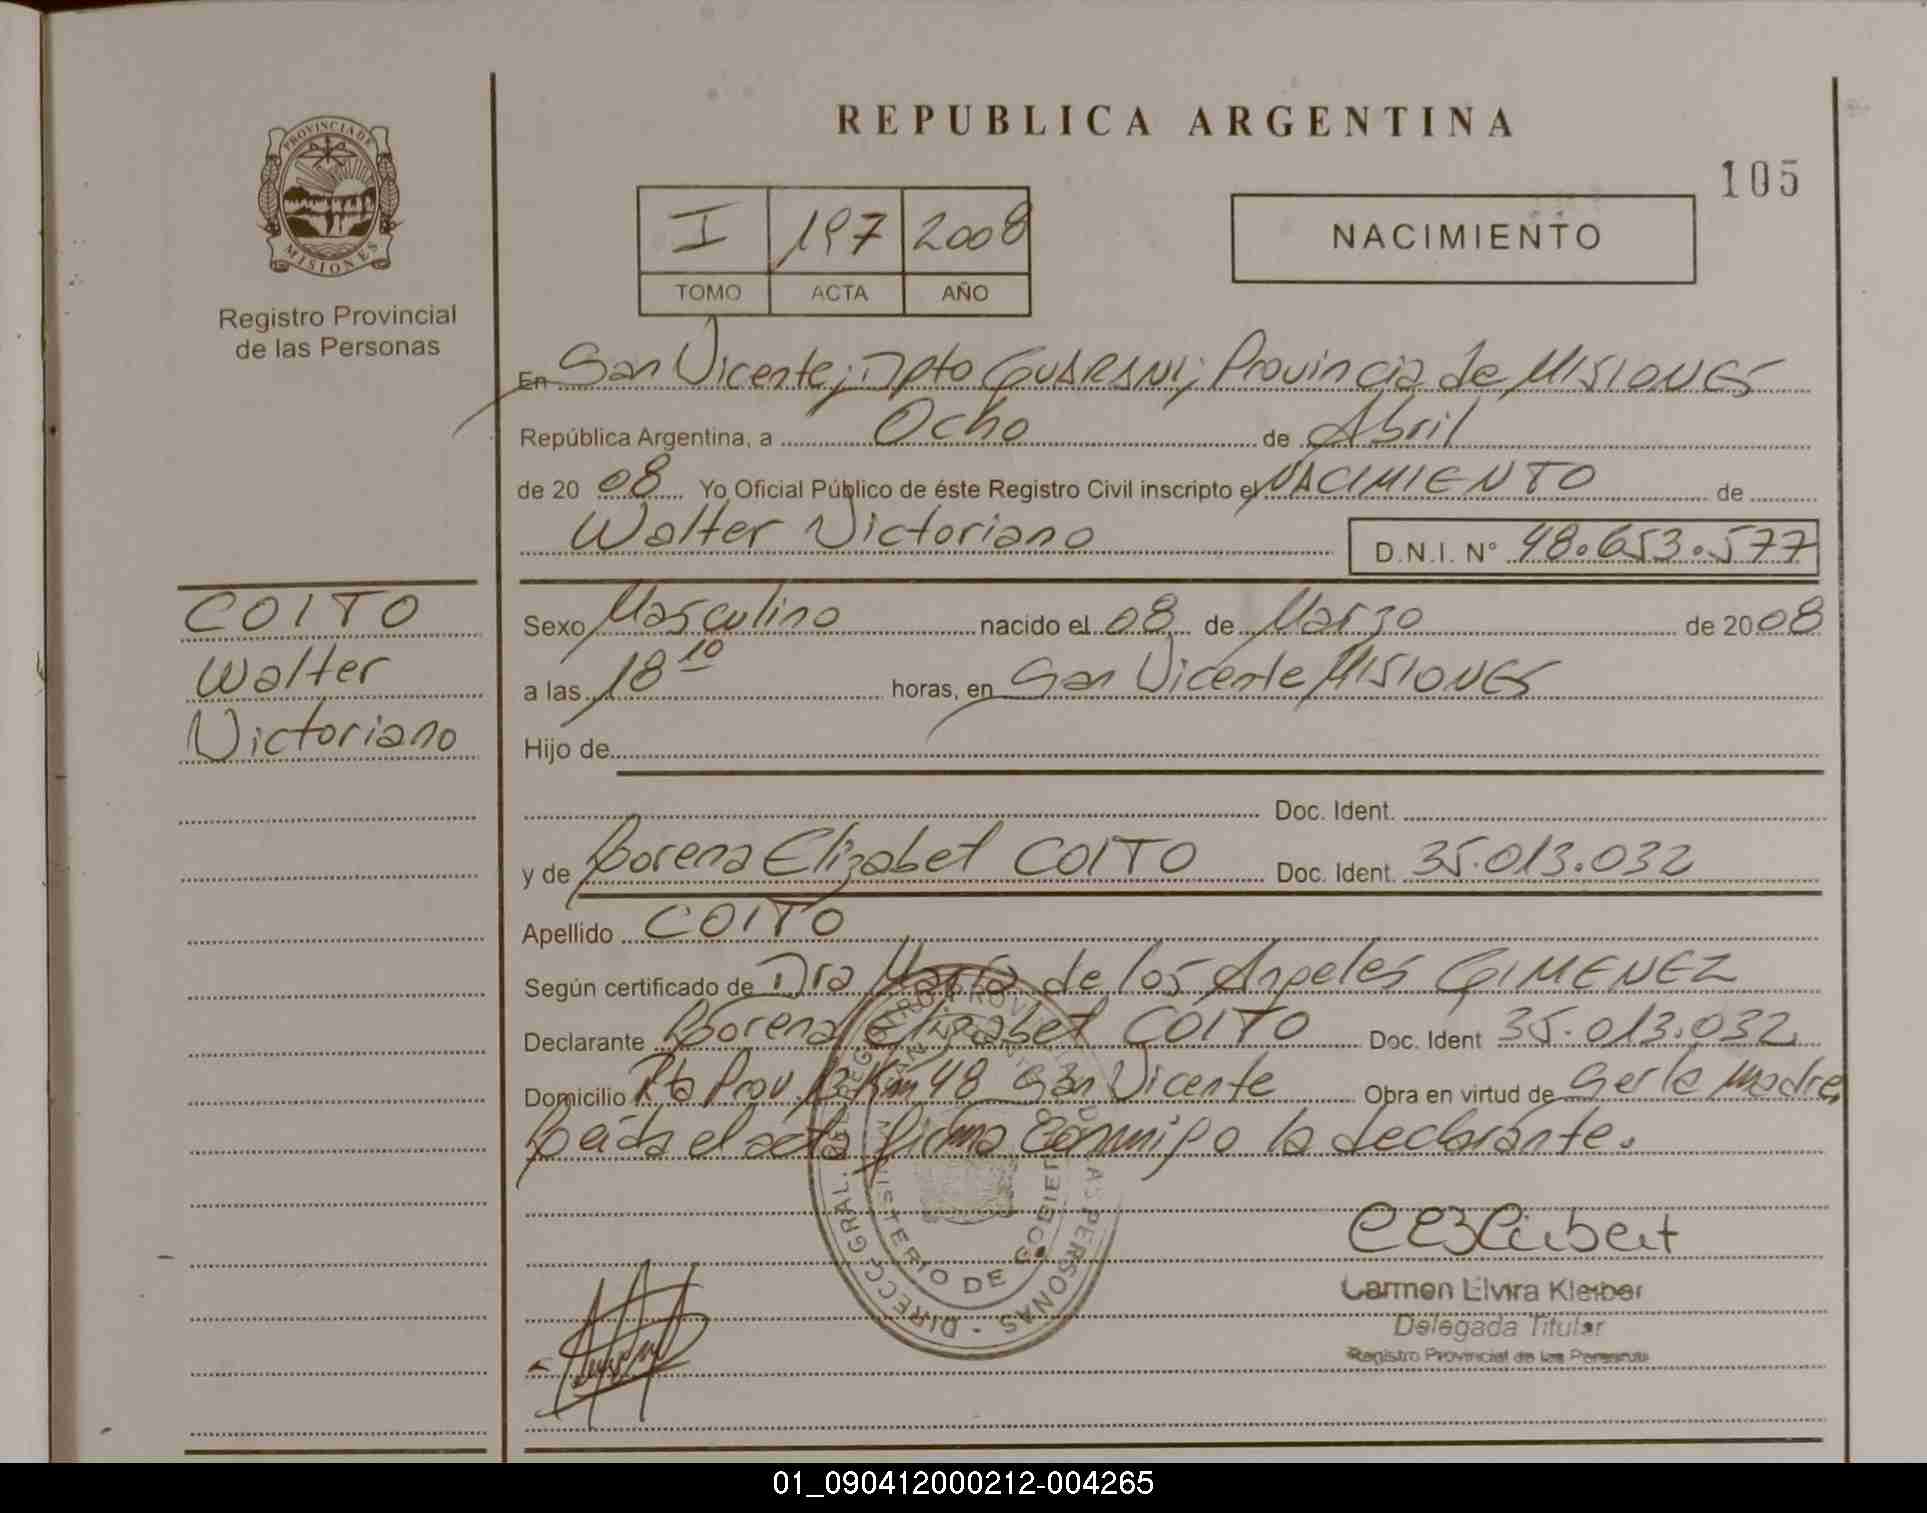 REPUBLICA ARGENTINA
105
PROVINCIA DE
MISIONES
Registro Provincial
de las Personas
I 197 2008
TOMO ACTA AÑO
NACIMIENTO
En San Vicente; Dpto GUARANI; Provincia de MISIONES
República Argentina, a Ocho de Abril
de 2008 Yo Oficial Público de éste Registro Civil inscripto el NACIMIENTO de
Walter Victoriano D.N.I. N° 48.653.577
COITO
Walter
Victoriano
Sexo Masculino nacido el 08 de Marzo de 2008
a las 18 10 horas, en San Vicente MISIONES
Hijo de
Doc. Ident.
y de Lorena Elizabet COITO Doc. Ident. 35.013.032
Apellido COITO
Según certificado de Dra María de los Angeles GIMENEZ
Declarante Lorena Elizabet COITO Doc. Ident 35.013.032
Domicilio Rta Prov. 13 Km 48 San Vicente Obra en virtud de Ser la madre
Leída el acta firma conmigo la declarante.
MINISTERIO DE GOBIERNO
Carmen Elvira Kleiber
Delegada Titular
Registro Provincial de las Personas
01_090412000212-004265